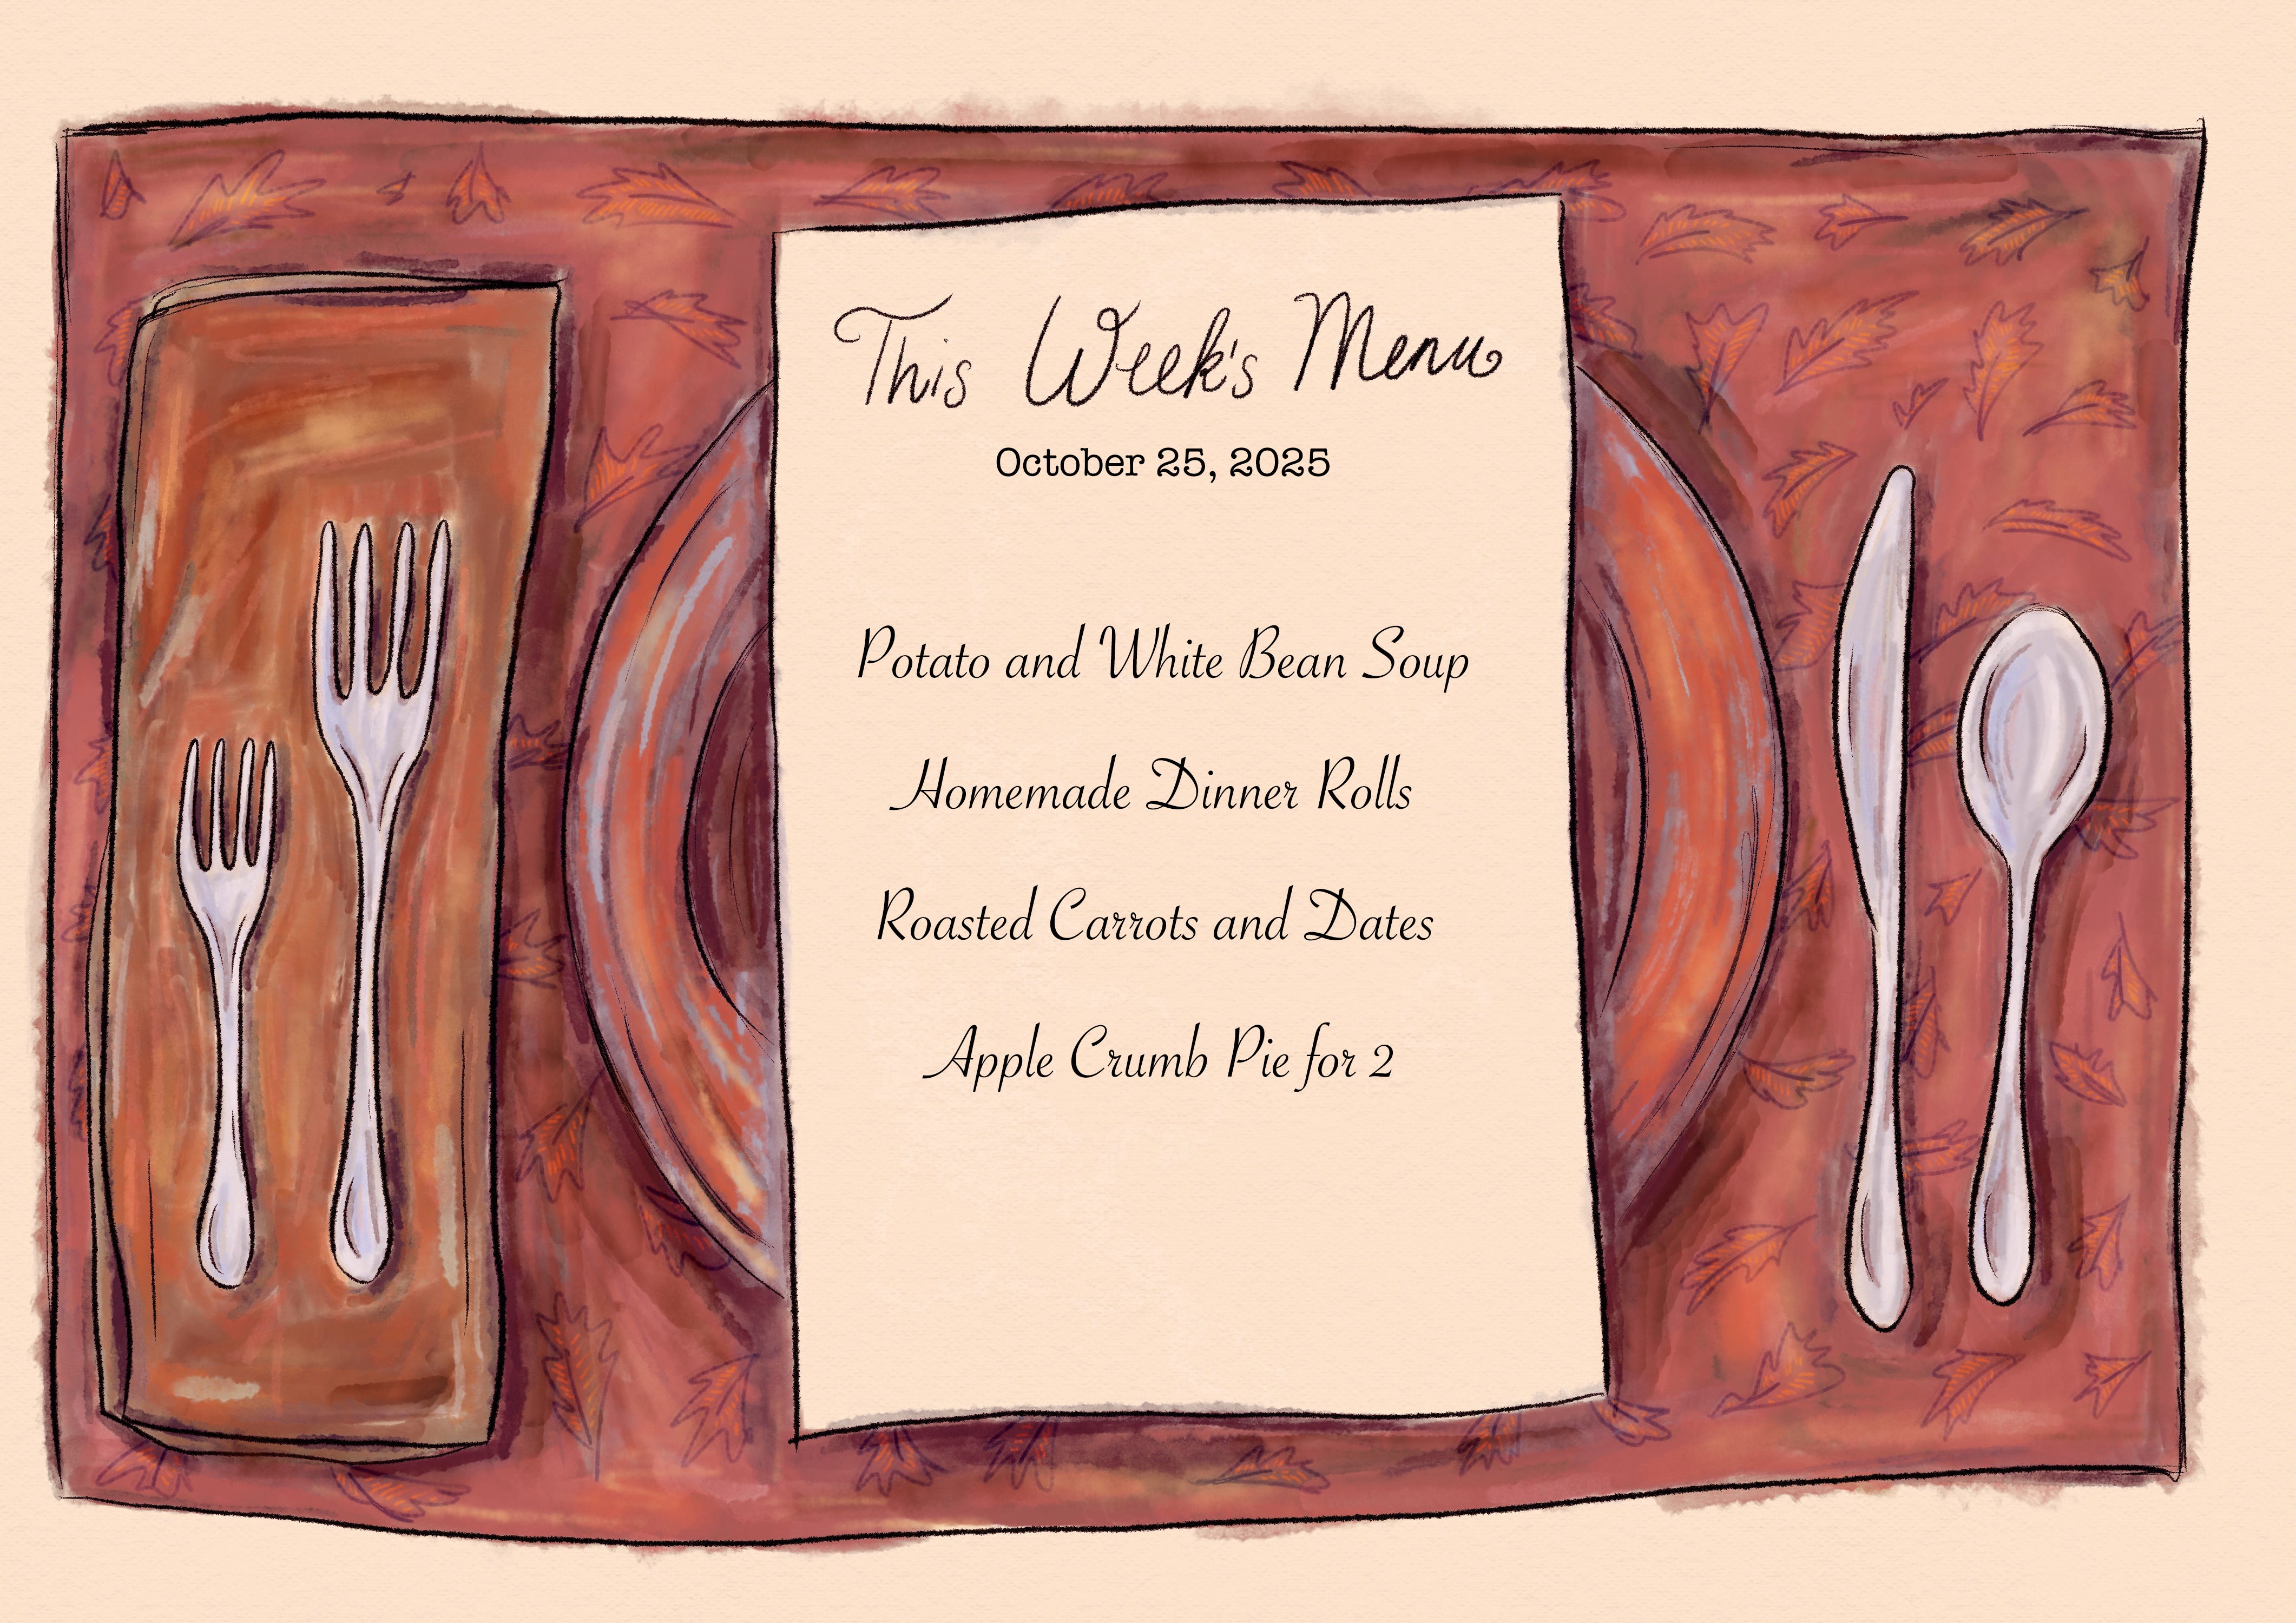 This Week's Menu
October 25, 2025
Potato and White Bean Soup
Homemade Dinner Rolls
Roasted Carrots and Dates
Apple Crumb Pie for 2